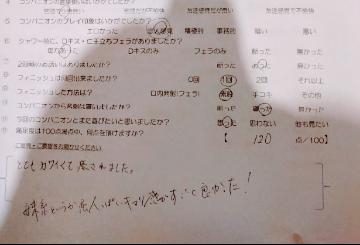 5 コンパニオンのプレイ印象はいかがでしたか？
エロかった 恋人感覚 積極的 事務的 暗い 悪い
6 シャワー時に、DK・仁王立ちフェラがありましたか？
両方あり Dキスのみ フェラのみ 断った 無かった
7 2回時のお誘いはありましたか？ 断った あった 無かった
8 フィニッシュは何回出来ましたか？ 0回 1回 2回 それ以上
9 フィニッシュした方法は？ 口内発射(フェラ) 素股 手コキ その他
コンパニオンから名刺は貰いましたか？ 断った 貰った 無かった
今回のコンパニオンとまた遊びたいと思いましたか？ 思った 思わない 他も見たい
満足度は100点満点中、何点を頂けますか？ 【 120 点/100】
ご意見・ご要望をお聞かせください
とてもカワイくて癒されました。